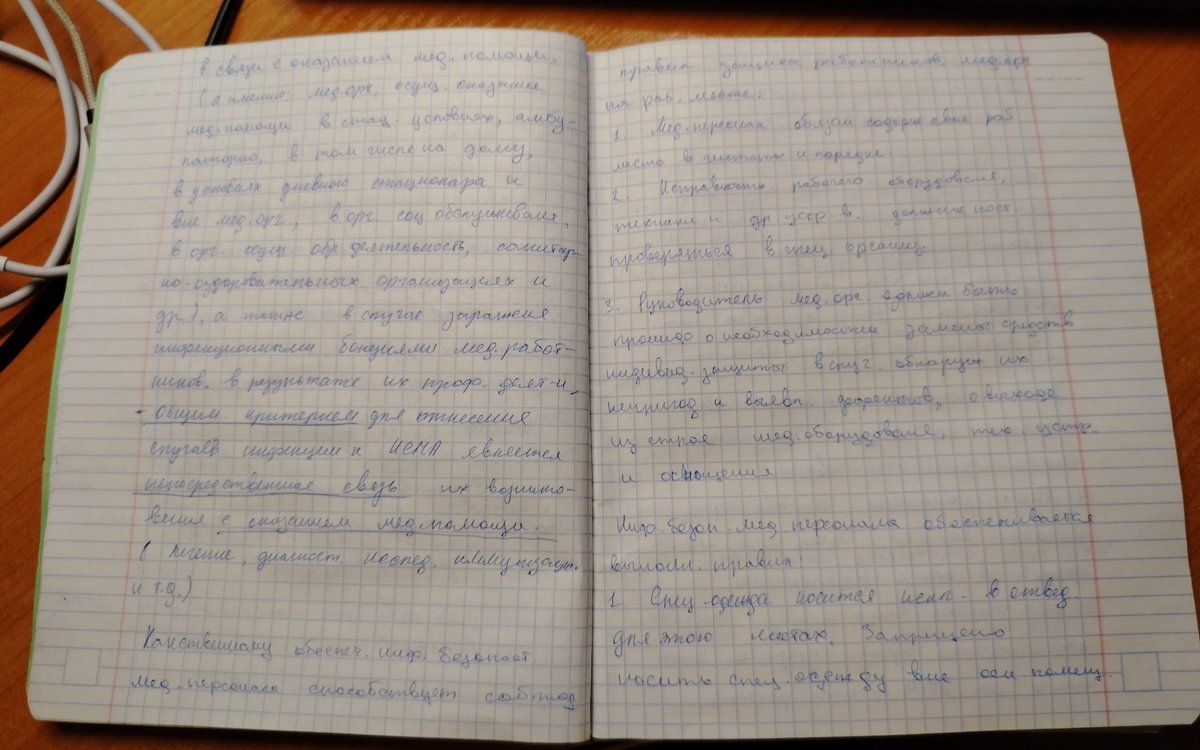 в связи с оказанием мед. помощи.
(а именно: мед.орг, осущ. оказание
мед.помощи в стац. условиях, амбу-
латорно, в том числе на дому,
в условиях дневного стационара и
вне мед.орг, в орг. соц обслуживания,
в орг. осущ обр.деятельность, санитар-
но-оздоровительных организациях и
др), а также в случае заражения
инфекционными болезнями мед.работ-
ников, в результате их проф. деят-и,
- общим критерием для отнесения
случаев инфекции к ИСМП является
непосредственная связь их возникно-
вения с оказанием мед.помощи.
(лечение, диагност. исслед, иммунизация.
и т.д.).
Качественному обеспеч. инф. безопаст.
мед.персонала способствует соблюд
правил защиты работников мед.орг
на раб. месте:
1. Мед.персонал обязан содерж свое раб
место в чистоте и порядке.
2. Исправность рабочего оборудования,
техники и др устр-в. должна пост.
проверяться в спец. организ.
3. Руководитель мед.орг должен быть
о необходимости замены средств
индивид.защиты в случ. обнаруж их
непригод и выявл. дефектов, о выходе
из строя мед.оборудования, тех. устр.
и оснащения
Инф.безоп. мед.персонала обеспечивается
выполн. правил:
1. Спец.одежда носится искл. в отвед.
для этого местах. Запрещено
носить спец.одежду вне осн помещ.